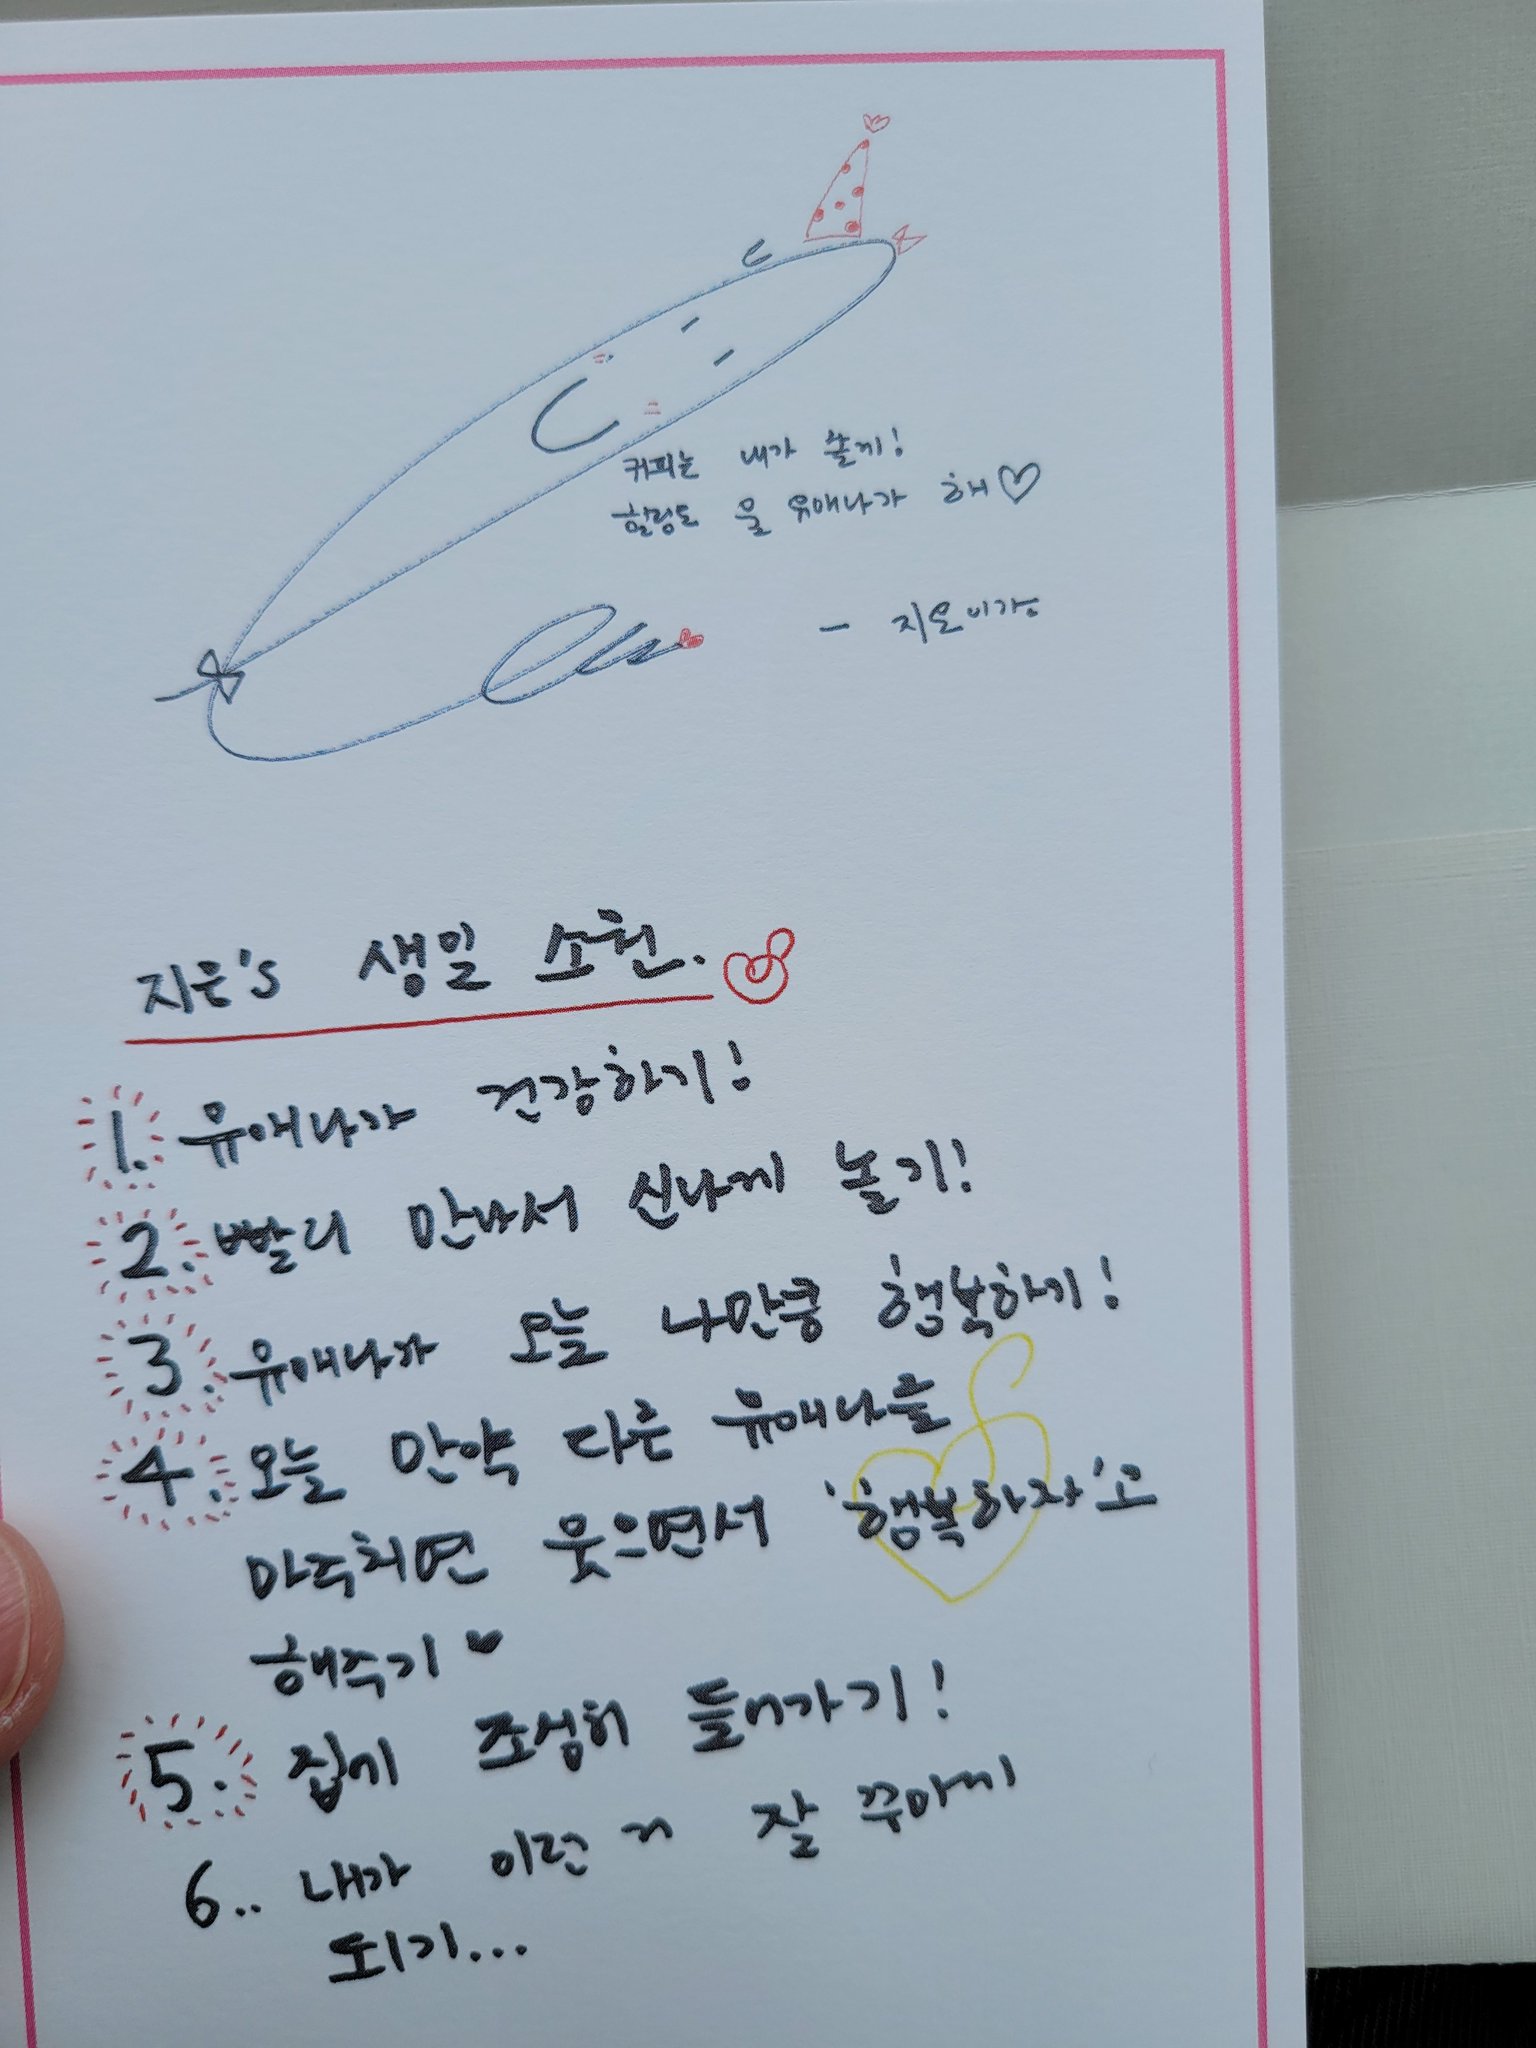 커피는 내가 쏠게!
힐링도 울 유애나가 해♡
- 지은이가
지은's 생일 소원.
1. 유애나가 건강하기!
2. 빨리 만나서 신나게 놀기!
3. 유애나가 오늘 나만큼 행복하기!
4. 오늘 만약 다른 유애나를
마주치면 웃으면서 '행복하자'고
해주기 ♥
5. 집에 조심히 들어가기!
6.. 내가 이런 거 잘 꾸미게
되기...